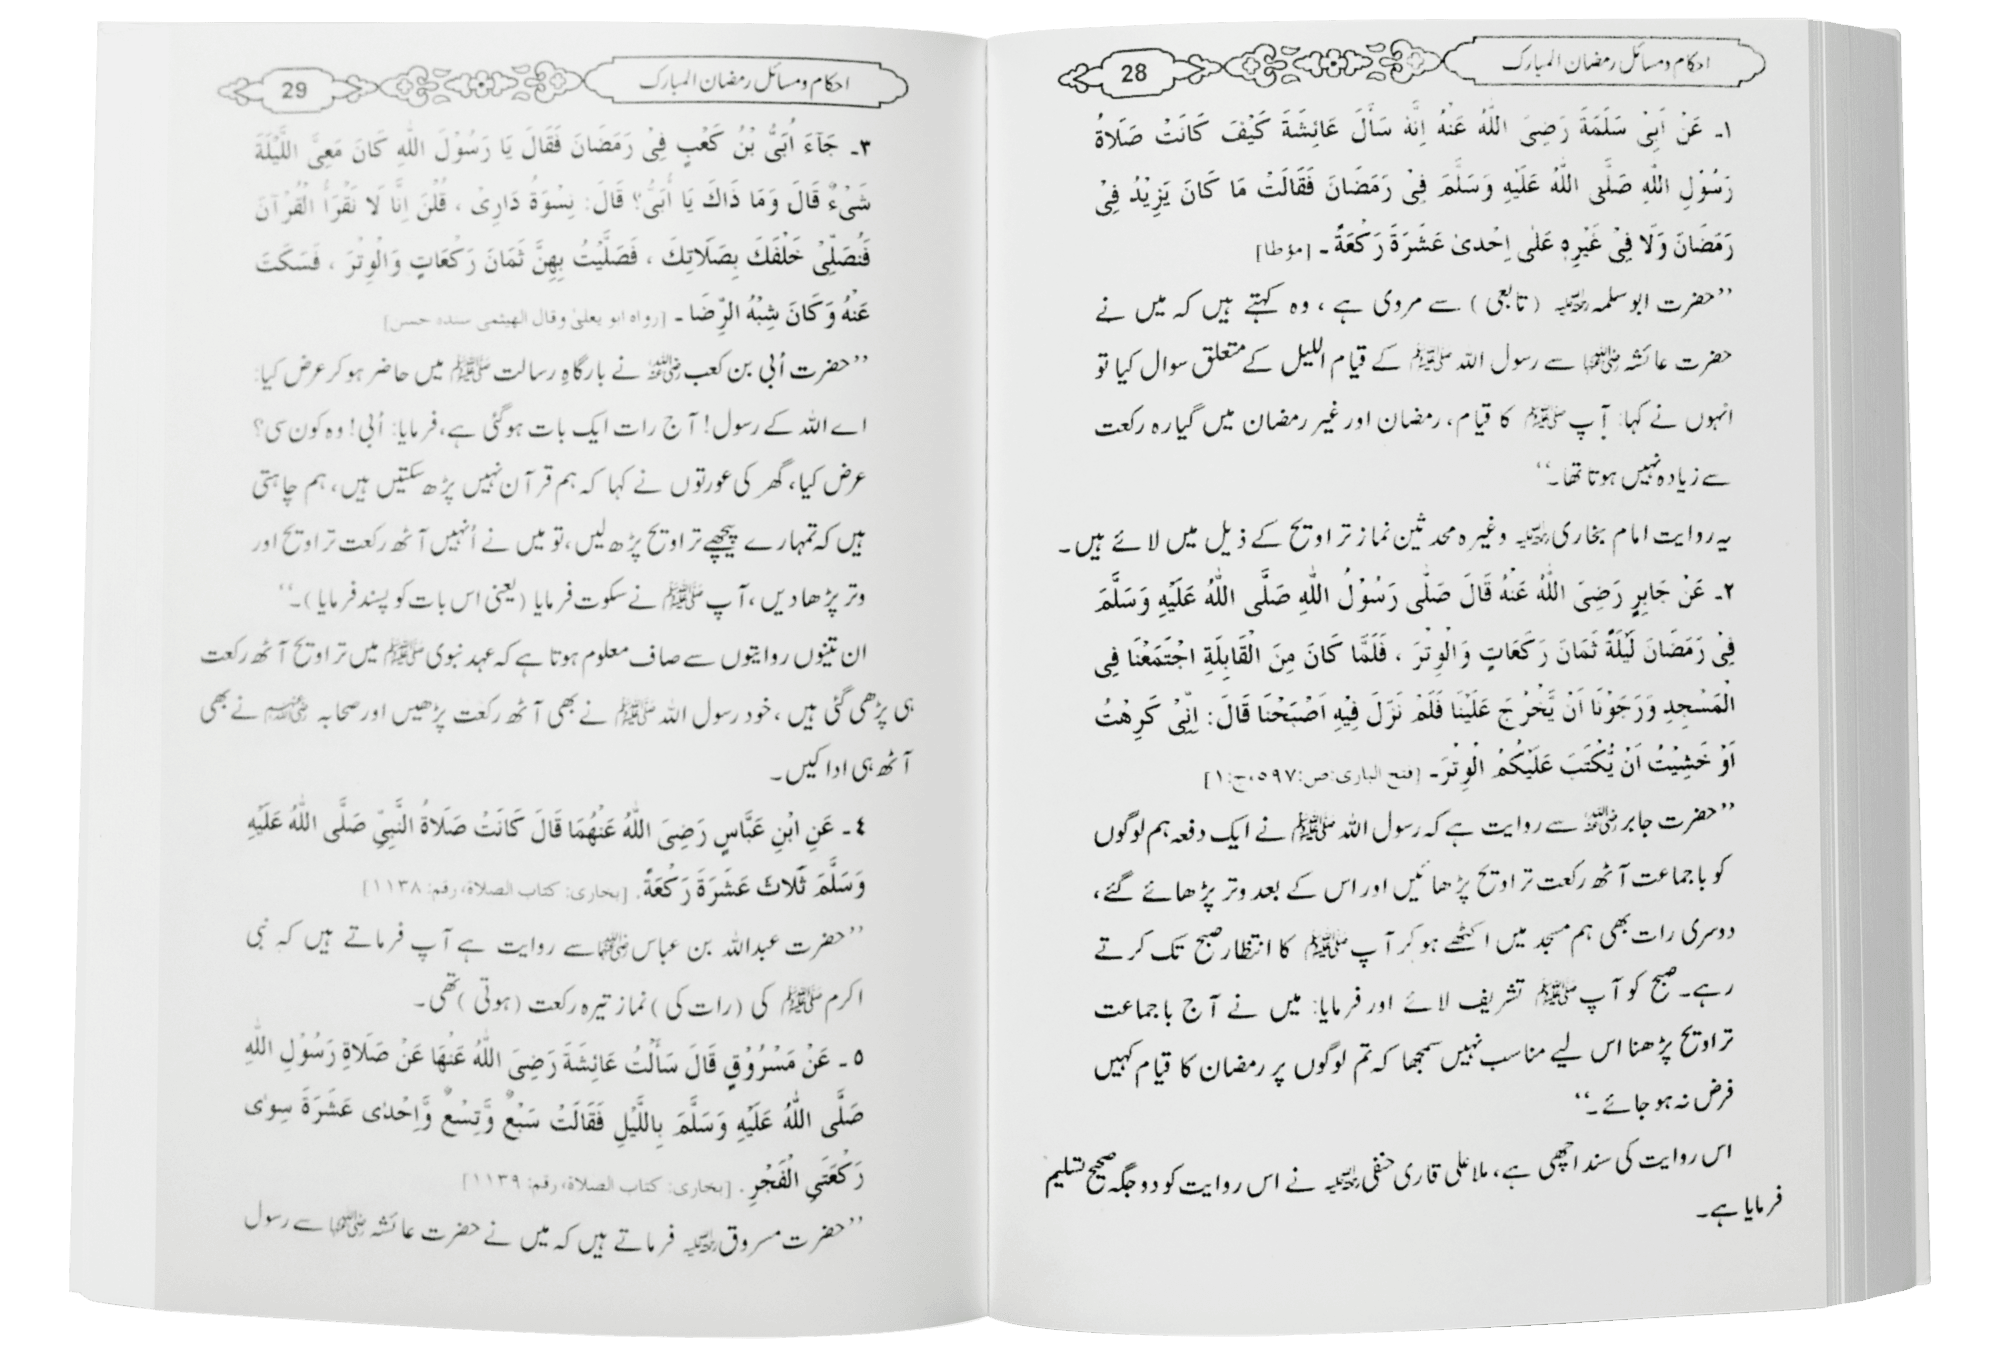 احکام و مسائل رمضان المبارک
28
١۔ عَنْ اَبِیْ سَلَمَةَ رَضِیَ اللّٰهُ عَنْهُ اِنَّهٗ سَأَلَ عَائِشَةَ كَیْفَ كَانَتْ صَلَاةُ
رَسُوْلِ اللّٰهِ صَلَّی اللّٰهُ عَلَیْهِ وَسَلَّمَ فِیْ رَمَضَانَ فَقَالَتْ مَا كَانَ یَزِیْدُ فِیْ
رَمَضَانَ وَلَا فِیْ غَیْرِهٖ عَلٰی اِحْدیٰ عَشَرَةَ رَكْعَةً۔ [مؤطا]
’’حضرت ابوسلمہ رحمۃ اللہ علیہ (تابعی) سے مروی ہے، وہ کہتے ہیں کہ میں نے
حضرت عائشہ رضی اللہ عنہا سے رسول اللہ ﷺ کے قیام اللیل کے متعلق سوال کیا تو
انہوں نے کہا: آپ ﷺ کا قیام، رمضان اور غیر رمضان میں گیارہ رکعت
سے زیادہ نہیں ہوتا تھا۔‘‘
یہ روایت امام بخاری رحمۃ اللہ علیہ وغیرہ محدثین نماز تراویح کے ذیل میں لائے ہیں۔
٢۔ عَنْ جَابِرٍ رَضِیَ اللّٰهُ عَنْهُ قَالَ صَلّٰی رَسُوْلُ اللّٰهِ صَلَّی اللّٰهُ عَلَیْهِ وَسَلَّمَ
فِیْ رَمَضَانَ لَیْلَةً ثَمَانَ رَكَعَاتٍ وَالْوِتْرَ ، فَلَمَّا كَانَ مِنَ الْقَابِلَةِ اجْتَمَعْنَا فِی
الْمَسْجِدِ وَرَجَوْنَا اَنْ یَّخْرُجَ عَلَیْنَا فَلَمْ نَزَلْ فِیْهِ اَصْبَحْنَا قَالَ: اِنِّیْ كَرِهْتُ
اَوْ خَشِیْتُ اَنْ یُّكْتَبَ عَلَیْكُمُ الْوِتْرَ۔ [فتح الباری:ص:٥٩٧،ج:١]
’’حضرت جابر رضی اللہ عنہ سے روایت ہے کہ رسول اللہ ﷺ نے ایک دفعہ ہم لوگوں
کو باجماعت آٹھ رکعت تراویح پڑھائیں اور اس کے بعد وتر پڑھائے گئے،
دوسری رات بھی ہم مسجد میں اکٹھے ہو کر آپ ﷺ کا انتظار صبح تک کرتے
رہے۔ صبح کو آپ ﷺ تشریف لائے اور فرمایا: میں نے آج باجماعت
تراویح پڑھنا اس لیے مناسب نہیں سمجھا کہ تم لوگوں پر رمضان کا قیام کہیں
فرض نہ ہو جائے۔‘‘
اس روایت کی سند اچھی ہے، ملا علی قاری حنفی رحمۃ اللہ علیہ نے اس روایت کو دو جگہ صحیح تسلیم
فرمایا ہے۔
احکام و مسائل رمضان المبارک
29
٣۔ جَآءَ اُبَیُّ بْنُ كَعْبٍ فِیْ رَمَضَانَ فَقَالَ یَا رَسُوْلَ اللّٰهِ كَانَ مَعِیَّ اللَّیْلَةَ
شَیْءٌ قَالَ وَمَا ذَاكَ یَا اُبَیُّ؟ قَالَ: نِسْوَةُ دَارِیْ ، قُلْنَ اِنَّا لَا نَقْرَأُ الْقُرْآنَ
فَنُصَلِّیْ خَلْفَكَ بِصَلَاتِكَ ، فَصَلَّیْتُ بِهِنَّ ثَمَانَ رَكْعَاتٍ وَالْوِتْرَ ، فَسَكَتَ
عَنْهُ وَكَانَ شِبْهُ الرِّضَا ۔ [رواه ابو یعلیٰ وقال الهیثمی سنده حسن]
’’حضرت اُبی بن کعب رضی اللہ عنہ نے بارگاہِ رسالت ﷺ میں حاضر ہو کر عرض کیا:
اے اللہ کے رسول! آج رات ایک بات ہو گئی ہے، فرمایا: اُبی! وہ کون سی؟
عرض کیا، گھر کی عورتوں نے کہا کہ ہم قرآن نہیں پڑھ سکتیں ہیں، ہم چاہتی
ہیں کہ تمہارے پیچھے تراویح پڑھ لیں، تو میں نے اُنہیں آٹھ رکعت تراویح اور
وتر پڑھا دیں، آپ ﷺ نے سکوت فرمایا (یعنی اس بات کو پسند فرمایا)۔‘‘
ان تینوں روایتوں سے صاف معلوم ہوتا ہے کہ عہد نبوی ﷺ میں تراویح آٹھ رکعت
ہی پڑھی گئی ہیں، خود رسول اللہ ﷺ نے بھی آٹھ رکعت پڑھیں اور صحابہ رضی اللہ عنہم نے بھی
آٹھ ہی ادا کیں۔
٤۔ عَنِ ابْنِ عَبَّاسٍ رَضِیَ اللّٰهُ عَنْهُمَا قَالَ كَانَتْ صَلَاةُ النَّبِیِّ صَلَّی اللّٰهُ عَلَیْهِ
وَسَلَّمَ ثَلَاثَ عَشَرَةَ رَكْعَةً. [بخاری: كتاب الصلاة، رقم: ١١٣٨]
’’حضرت عبداللہ بن عباس رضی اللہ عنہما سے روایت ہے آپ فرماتے ہیں کہ نبی
اکرم ﷺ کی (رات کی) نماز تیرہ رکعت (ہوتی) تھی۔
٥۔ عَنْ مَسْرُوْقٍ قَالَ سَأَلْتُ عَائِشَةَ رَضِیَ اللّٰهُ عَنْهَا عَنْ صَلَاةِ رَسُوْلِ اللّٰهِ
صَلَّی اللّٰهُ عَلَیْهِ وَسَلَّمَ بِاللَّیْلِ فَقَالَتْ سَبْعٌ وَّتِسْعٌ وَّاِحْدٰی عَشَرَةَ سِوٰی
رَكْعَتَیِ الْفَجْرِ. [بخاری: كتاب الصلاة، رقم: ١١٣٩]
’’حضرت مسروق رحمۃ اللہ علیہ فرماتے ہیں کہ میں نے حضرت عائشہ رضی اللہ عنہا سے رسول